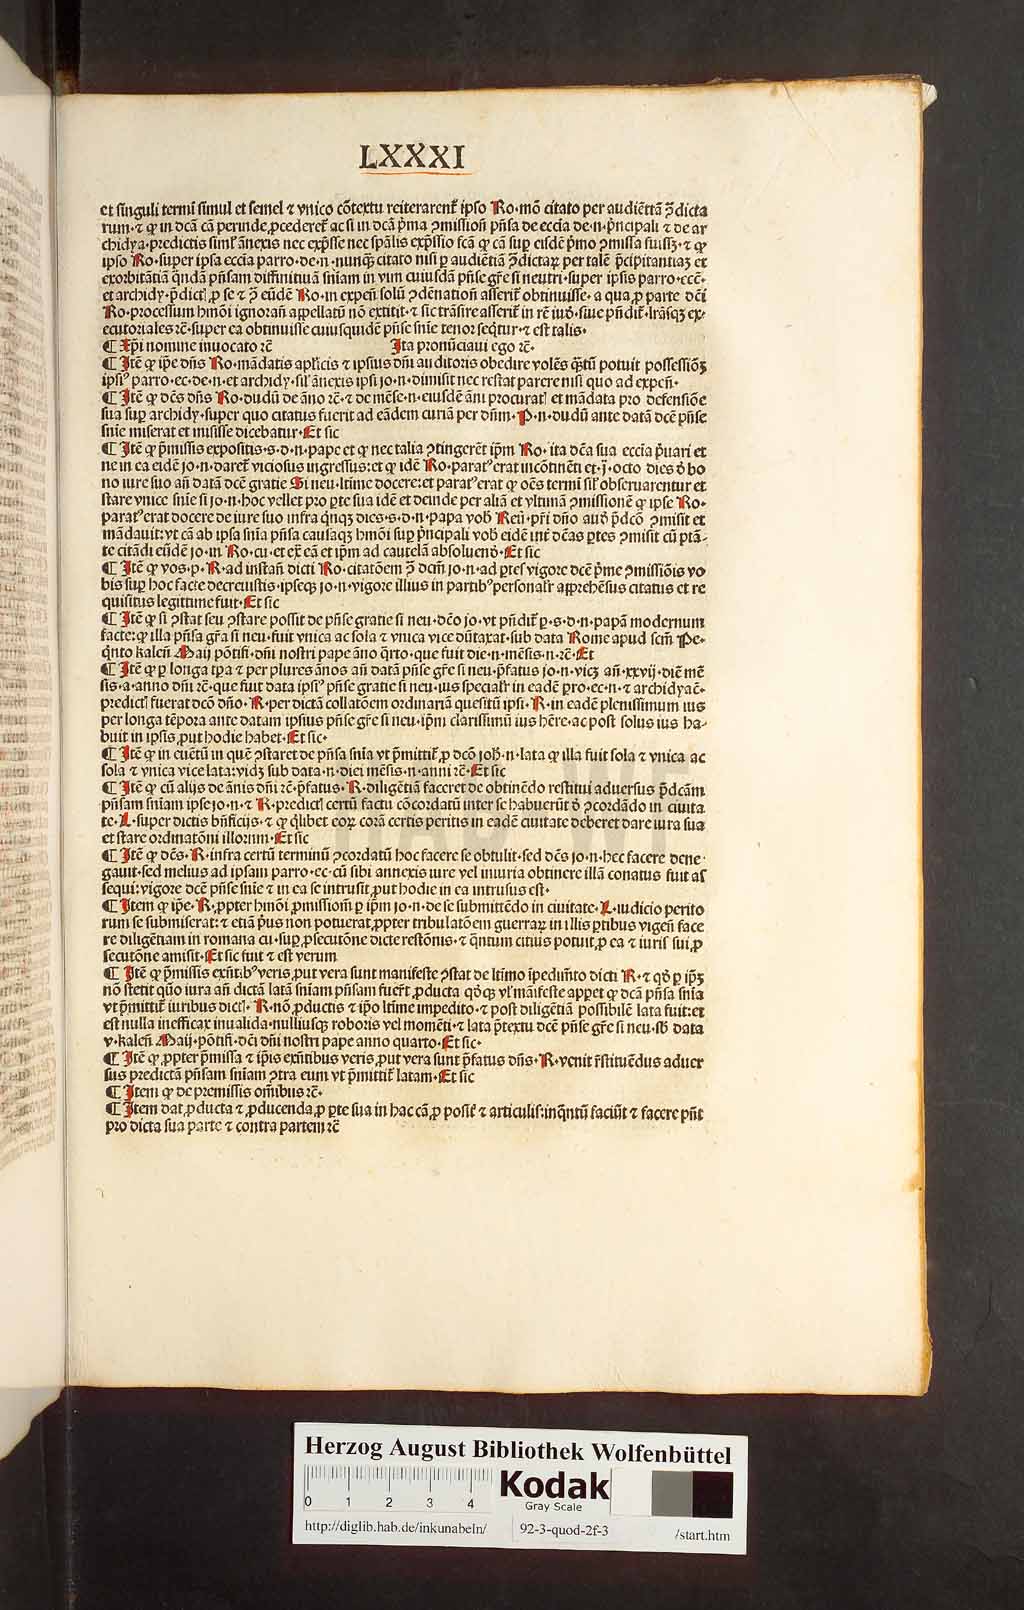 LXXXI
et singuli termĩ simul et semel ⁊ vnico cõtextu reiterarent᷑ ipso Ro·mõ citato per audiẽtiã ꝯ̃dicta
rum·⁊ ꝙ in dcã cã perinde ꝓcederet᷑ ac si in dcã p̃ma ꝯmission̄ pñsa de eccĩa de·n·p̃ncipali ⁊ de ar
chidya·predictis siml᷑ ãnexis nec exp̃sse nec sp̃alis exp̃ssio fcã ꝙ cã suꝑ eisdẽ p̃mo ꝯmissa fuissꝫ·⁊ ꝙ
ipso Ro·super ipsa eccĩa parro·de·n·nunqꝫ citato nisi ꝑ audiẽtiã ꝯ̃dictaꝝ per talẽ p̃cipitantiaꝫ et
exorbitãtiã q̃ndã pñsam diffinitiuã sniam in vun cuiusdã pñse gr̃e si neutri·super ipsis parro·ecc̃·
et archidy·p̃dict᷒ ꝓ se ⁊ ꝯ̃ eũdẽ Ro·in expen̄ solũ ꝯdẽnation̄ asserit᷑ obtinuisse·a qua ꝓ parte dc̃i
Ro·processum hmõi ignoran̄ appellatũ nõ extitit·⁊ sic trãsire asserit᷑ in rẽ iudͦ·siue pñdit᷑·lrãsqꝫ ex⸗
ecutoriales rc̃·super ea obtinuisse cuiusquidẽ pñse snĩe tenor seq̃tur·⁊ est talis·
¶ Xp̃i nomine inuocato rc̃ Ita pronũciaui ego rc̃·
¶ Itẽ ꝙ ip̃e dñs Ro·mãdatis apl̃icis ⁊ ipsius dñi auditoris obedire volẽs q̃tũ potuit possessiõꝫ
ipsiꝰ parro·ec·de·n·et archidy·sil᷑ ãnexis ipsi jo·n·dimisit nec restat parere nisi quo ad expen̄·
¶ Itẽ ꝙ dc̃s dñs Ro·dudũ de ãno rc̃·⁊ de mẽse·n·eiusdẽ ãni procurat᷒ et mãdata pro defensiõe
sua suꝑ archidy·super quo citatus fuerit ad eãdem curiã per dñm·P·n·dudũ ante datã dcẽ pñse
snie miserat et misisse dicebatur·Et sic
¶ Itẽ ꝙ p̃missis expositis·s·d·n·pape et ꝙ nec talia ꝯtingerẽt ip̃m Ro·ita dc̃a sua eccĩa p̃uari et
ne in ea eidẽ jo·n·daret᷑ viciosus ingressus:et ꝙ idẽ Ro·paratꝰ erat incõtinẽti et·j̃·octo dies d̾ bo
no iure suo an̄ datã dcẽ gratie Si neu·ltime docere:et paratꝰ erat ꝙ oẽs termĩ sil᷑ obseruarentur et
stare vnice snie si jo·n·hoc vellet pro ꝑte sua idẽ et deinde per aliã et vltimã ꝯmissionẽ ꝙ ipse Ro·
paratꝰ erat docere de iure suo infra q̃nqꝫ dies·s·d·n·papa vob̾ Reñ·pr̃i dño aud̾ p̃dcõ ꝯmisit et
mãdauit:vt cã ab ipsa snĩa pñsa causaqꝫ hmõi suꝑ p̃ncipali vob̾ eidẽ int᷑ dc̃as ꝑtes ꝯmisit cũ ptã⸗
te citãdi eũdẽ jo·in Ro·cu·et ex̃ eã et ip̃m ad cautelã absoluend̾·Et sic
¶ Itẽ ꝙ vos·p·R·ad instan̄ dicti Ro·citatõem ꝯ̃ dcm̃ jo·n·ad ꝑtes vigore dcẽ p̃me ꝯmissiõis vo
bis suꝑ hoc facte decreuistis·ipseqꝫ jo·n·vigore illius in partibꝰ personalr̃ appreẽsus citatus et re
quisitus legittime fuit·Et sic
¶ Itẽ ꝙ si ꝯstat seu ꝯstare possit de pñse gratie si neu·dc̃o jo·vt pñdit᷑ ꝑ·s·d·n·papã modernum
facte:ꝙ illa pñsa gr̃a si neu·fuit vnica ac sola ⁊ vnica vice dũtaxat·sub data Rome apud scm̃ Pe·
q̃nto kalen̄ Maij põtifi·dñi nostri pape ãno q̃rto·que fuit die·n·mẽsis·n·rc̃·Et
¶ Itẽ ꝙ ꝑ longa tꝑa ⁊ per plures ãnos an̄ datã pñse gr̃e si neu·p̃fatus jo·n·vicꝫ an̄·xxvij·diẽ mẽ
sis·a·anno dñi rc̃·que fuit data ipsiꝰ pñse gratie si neu·ius specialr̃ in eadẽ ꝑro·ec·n·⁊ archidyac̃·
predict᷒ fuerat dcõ dño·R·per dictã collatõem ordinariã quesitũ ipsi·R·in eadẽ plenissimum ius
per longa tẽpora ante datam ipsius pñse gr̃e si neu·ip̃m clarissimũ ius hẽre·ac post solus ius ha⸗
buit in ipsis ꝓut hodie habet·Et sic·
¶ Itẽ ꝙ in euẽtũ in quẽ ꝯstaret de pñsa snĩa vt p̃mittit᷑ ꝑ dcõ joh̾·n·lata ꝙ illa fuit sola ⁊ vnica ac
sola ⁊ vnica vice lata:vidꝫ sub data·n·diei mẽsis·n·anni rc̃·Et sic
¶ Itẽ ꝙ cũ alijs de ãnis dñi rc̃·p̃fatus·R·diligẽtiã faceret de obtinẽdo restitui aduersus p̃dcãm
pñsam sniam ipse jo·n·⁊ R·predict᷒ certũ factũ cõcordatũ inter se habuerũt d̾ ꝯcordãdo in ciuita
te·L·super dictis bñficijs·⁊ ꝙ q̃libet eoꝝ corã certis peritis in eadẽ ciuitate deberet dare iura sua
et stare ordinatõni illorum·Et sic
¶ Itẽ ꝙ dc̃s·R·infra certũ terminũ ꝯcordatũ hoc facere se obtulit·sed dc̃s jo·n·hec facere dene·
gauit·sed melius ad ipsam parro·ec·cũ sibi annexis iure vel iniuria obtinere illã conatus fuit as
sequi:vigore dcẽ pñse snie ⁊ in ea se intrusit ꝓut hodie in ea intrusus est·
¶ Item ꝙ ip̃e·R·ꝓpter hmõi ꝓmissiom̃ ꝑ ip̃m jo·n·de se submittẽdo in ciuitate·L·iudicio perito
rum se submiserat:⁊ etiã p̃us non potuerat ꝓpter tribulatõem guerraꝝ in illis ꝑtibus vigen̄ face
re diligẽtiam in romana cu·suꝑ ꝓsecutõne dicte restõnis·⁊ q̃ntum citius potuit ꝓ ea ⁊ iuris sui ꝓ
secutõne amisit·Et sic fuit ⁊ est verum
¶ Itẽ ꝙ p̃missis exñt·bꝰ veris ꝓut vera sunt manifeste ꝯstat de ltimo ĩpedimẽto dicti R·⁊ qͦd ꝑ ip̃ꝫ
nõ stetit quo iura an̄ dictã latã sniam pñsam fuer̃t ꝓducta qͦqꝫ vl᷑ mãifeste appet ꝙ dcã pñsa snĩa
vt p̃mittit᷑ iuribus dict᷒·R·nõ ꝓductis ⁊ ip̃o ltĩme impedito·⁊ post diligẽtiam possibilẽ lata fuit:et
est nulla inefficax inualida·nulliusqꝫ roboris vel momẽti·⁊ lata p̃textu dcẽ pñse gr̃e si neu·sb̾ data
v·kalen̄ Maij·põtifi·dc̃i dñi nostri pape anno quarto·Et sic·
¶ Itẽ ꝙ ꝓpter p̃missa ⁊ ip̃is exñtibus veris ꝓut vera sunt p̃fatus dñs·R·venit r̃stituẽdus aduer
sus predictã pñsam sniam ꝯtra eum vt p̃mittit᷑ latam·Et sic
¶ Item ꝙ de premissis om̃ibus rc̃·
¶ Item dat ꝓducta ⁊ ꝓducenda ꝓ ꝑte sua in hac cã ꝓ posit᷒ ⁊ articulis:inq̃ntũ faciũt ⁊ facere pñt
pro dicta sua parte ⁊ contra partem rc̃
HAB WF
Herzog August Bibliothek Wolfenbüttel
0 1 2 3 4
Kodak
Gray Scale
http://diglib.hab.de/inkunabeln/ 92-3-quod-2f-3 /start.htm